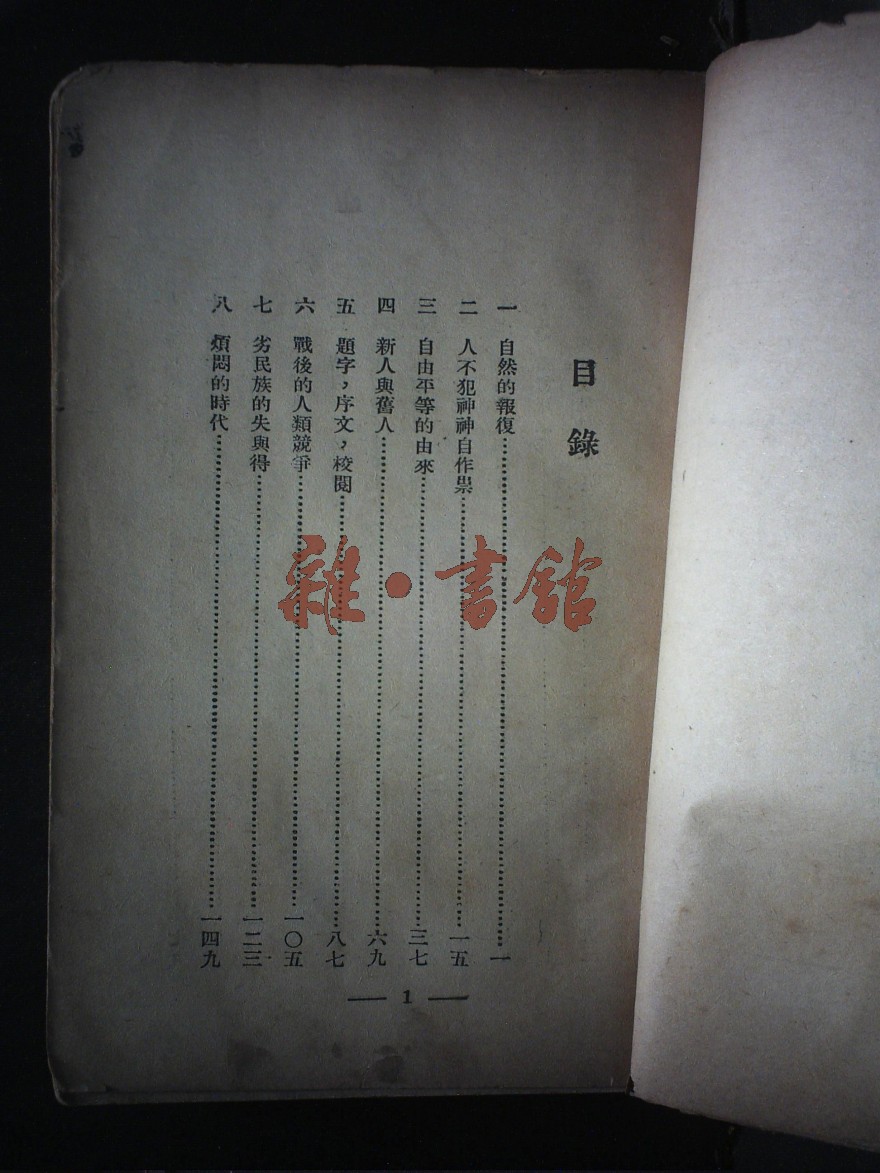 目錄
一 自然的報復…………一
二 人不犯神神自作祟…………一五
三 自由平等的由來…………三七
四 新人與舊人…………六九
五 題字，序文，校閱…………八七
六 戰後的人類競爭…………一〇五
七 劣民族的失與得…………一二三
八 煩悶的時代…………一四九
— 1 —
雜·書館